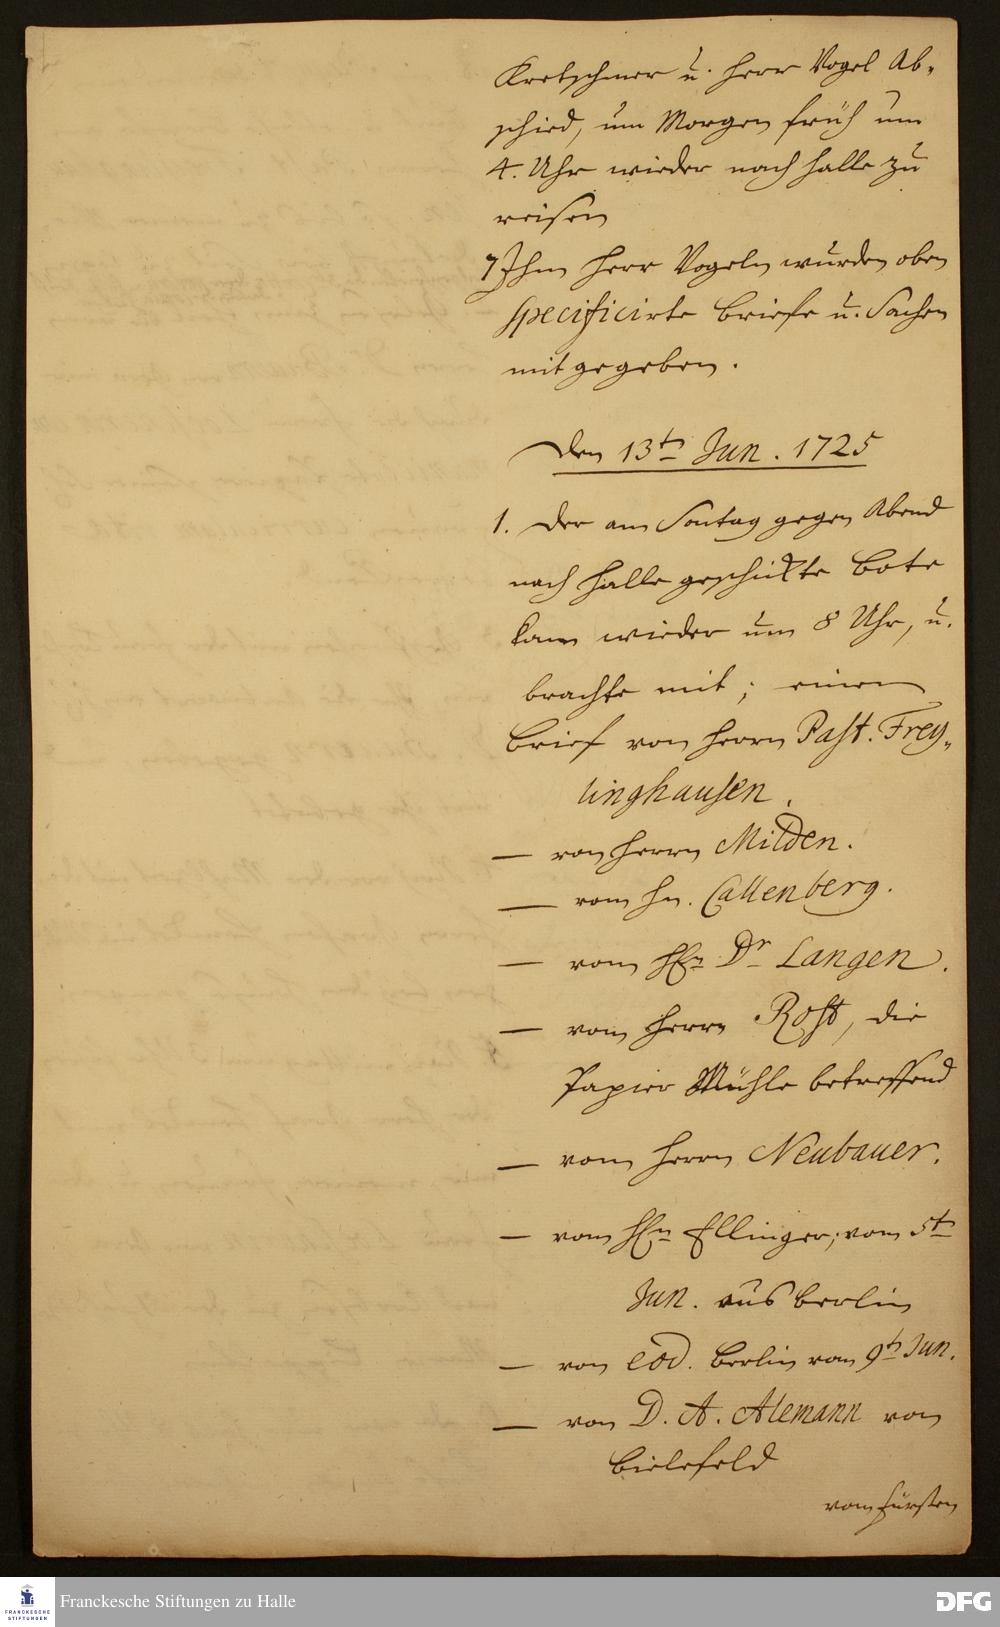 Kretschmer u. Herr Vogel Ab-
schied, um Morgen früh um
4. Uhr wieder nach Halle zu
reisen
7 Ihm Herr Vogeln wurden oben
specificirte Briefe u. Sachen
mit gegeben.
Den 13tn Jun. 1725
1. Der am Sontag gegen Abend
nach Halle geschickte Bote
kam wieder um 8 Uhr, u.
brachte mit; einen
Brief von Herrn Past. Frey-
linghausen.
— von Herrn Milden.
— vom Hn. Callenberg.
— vom HEn Dr Langen.
— vom Herrn Rost, die
Papier Mühle betreffend
— vom Herrn Neubauer.
— vom HEn Ellinger; vom 5t
Jun. aus Berlin
— von eod. Berlin vom 9tn Jun.
— von D. A. Alemann von
Bielefeld
vom Fürsten
Franckesche Stiftungen zu Halle
FRANCKESCHE
STIFTUNGEN
DFG